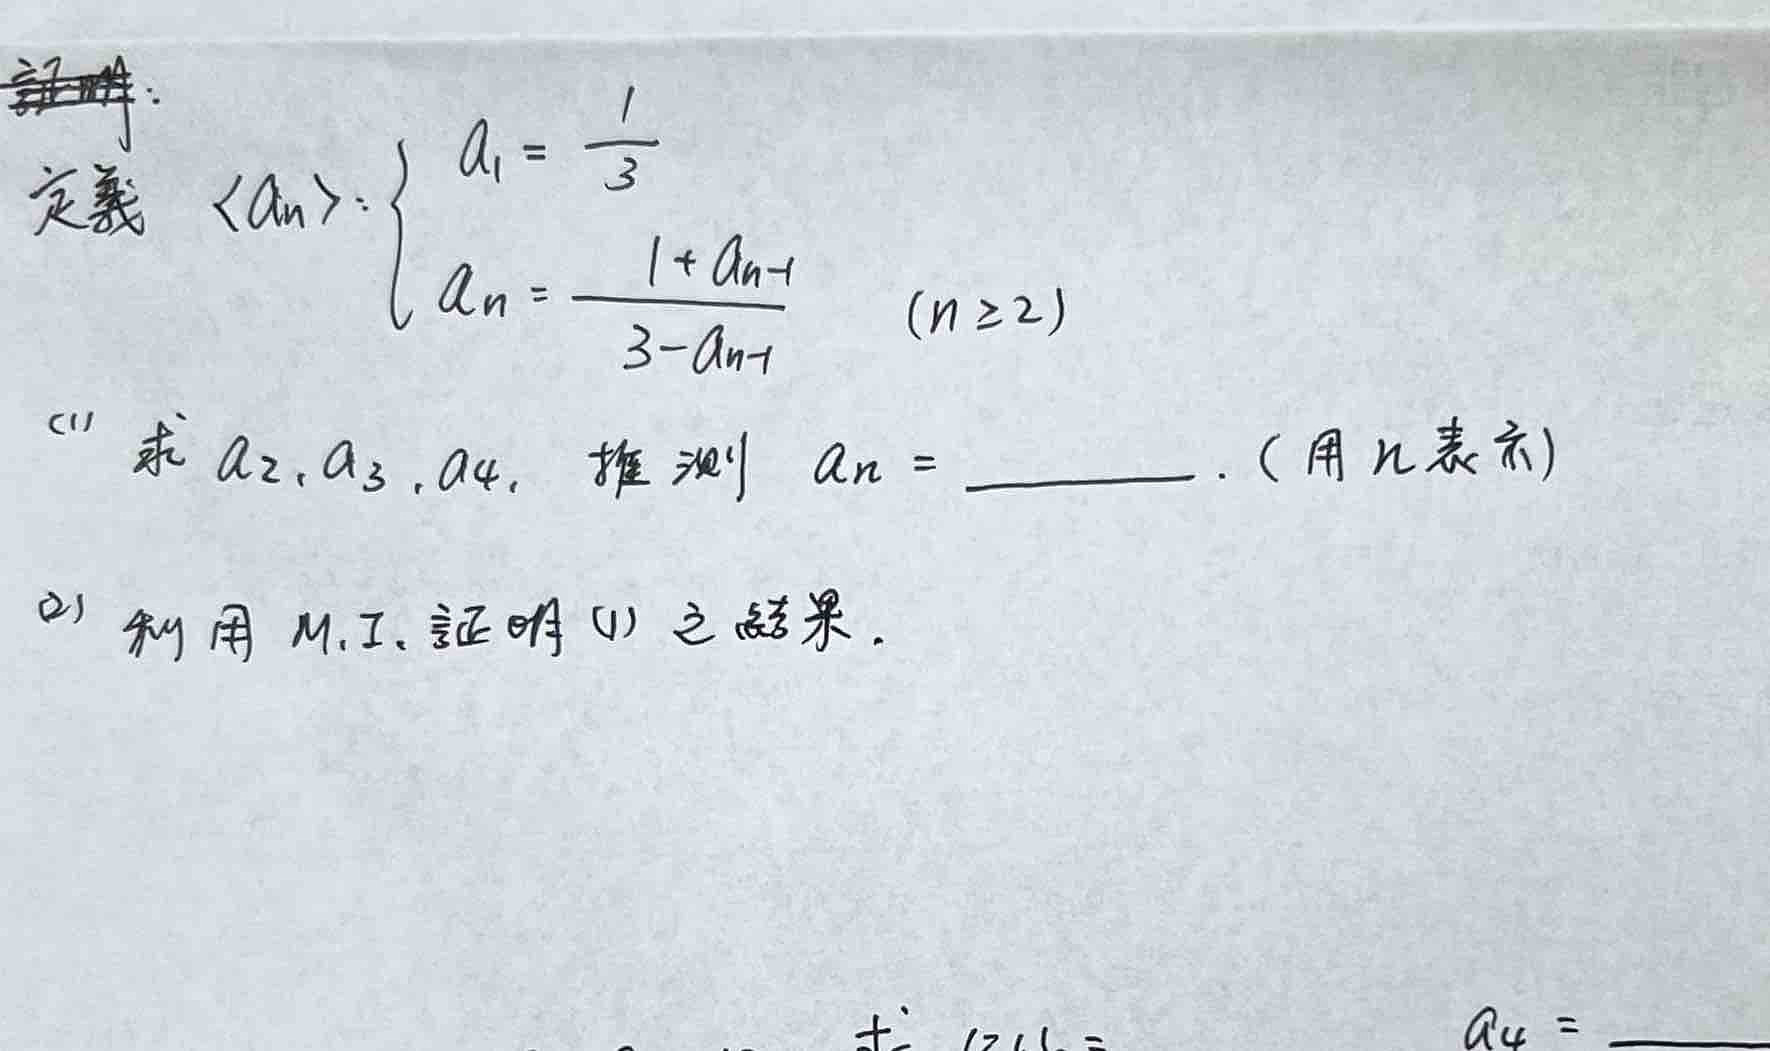 証明:
定義 <an>: { a1 = 1/3
an = (1 + an-1)/(3 - an-1) (n ≥ 2)
(1) 求 a2, a3, a4, 推測 an = ______. (用 n 表示)
(2) 利用 M.I. 証明 (1) 之結果.
求 a4 = ____